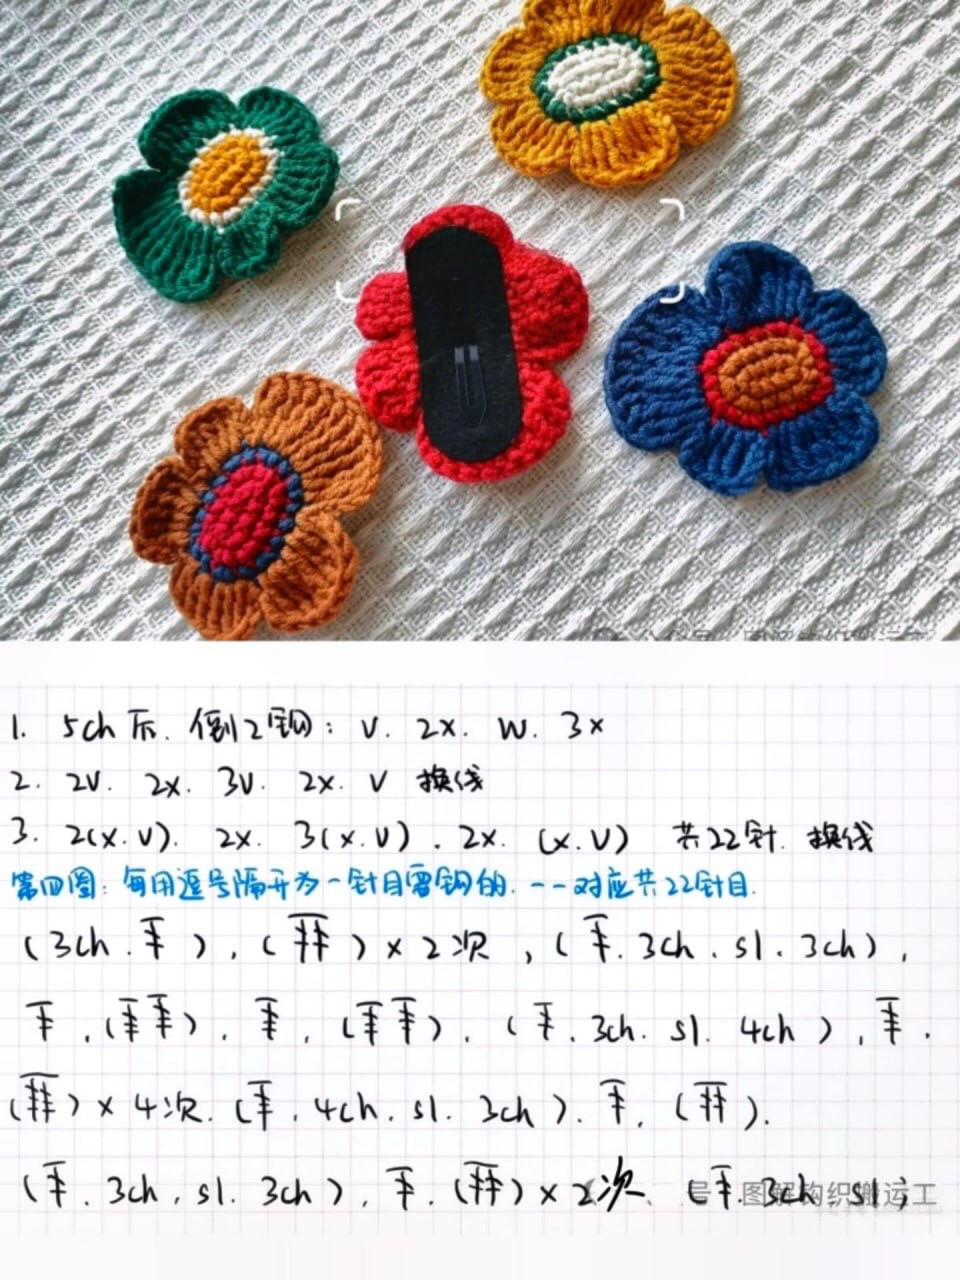 1. 5ch后. 倒2钩: V. 2x. W. 3x
2. 2V. 2x. 3V. 2x. V 换线
3. 2(x.V). 2x. 3(x.V). 2x. (x.V) 共22针. 换线
第四圈: 每用逗号隔开为一针目需钩的. 一一对应共22针目.
(3ch. ), ( ) × 2次, ( . 3ch. sl. 3ch),
, ( ). , ( ). ( . 3ch. sl. 4ch), .
( ) × 4次. ( . 4ch. sl. 3ch). , ( ).
( . 3ch. sl. 3ch), . ( ) × 2次 ( . 3ch. sl;
号 · 图解钩织搬运工